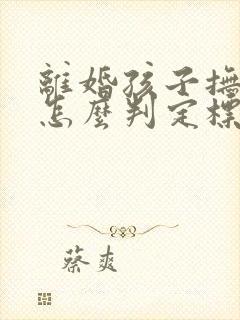 離婚孩子撫
怎麼判定標
蔡爽